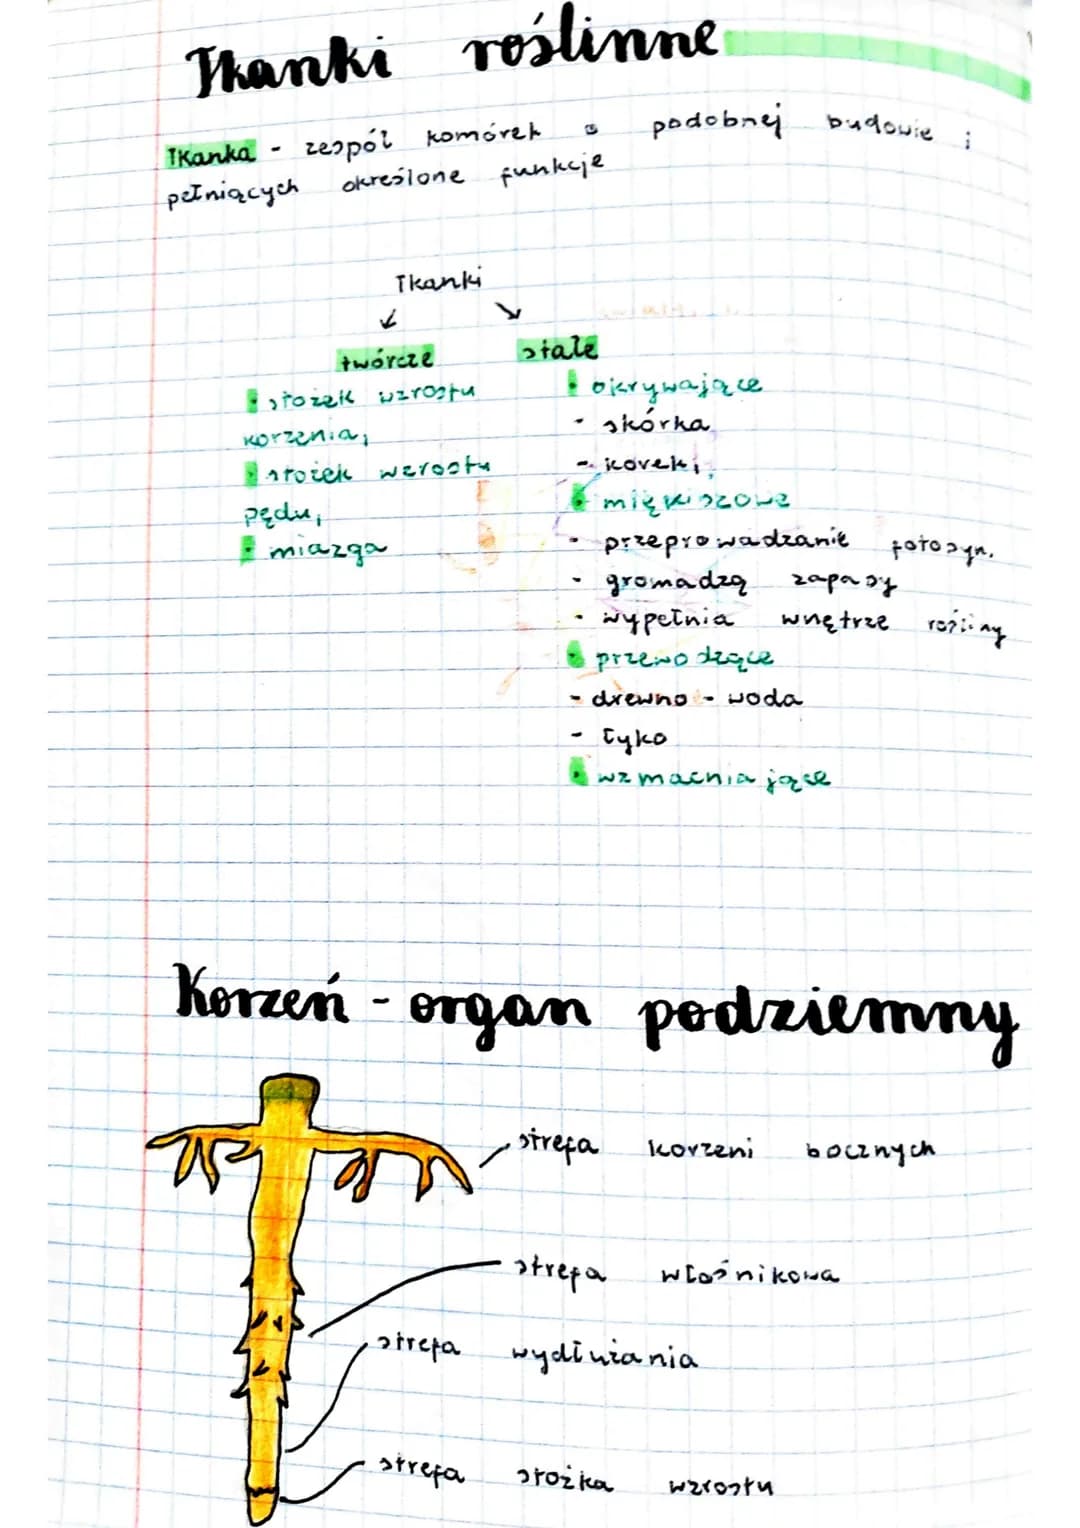 Tkanki roślinne
Tkanka - zespół komórek o podobnej budowie i
pełniących określone funkcje
Tkanki
twórcze
• stożek wzrostu
korzenia,
• stożek wzrostu
pędu,
• miazga
stałe
• okrywające
- skórka
- korek,
• miękiszowe
- przeprowadzanie fotosyn.
- gromadzą zapasy
- wypełnia wnętrze rośliny
• przewodzące
- drewno - woda
- łyko
• wzmacniające
Korzeń - organ podziemny
strefa korzeni bocznych
strefa włośnikowa
strefa wydłużania
strefa stożka wzrostu